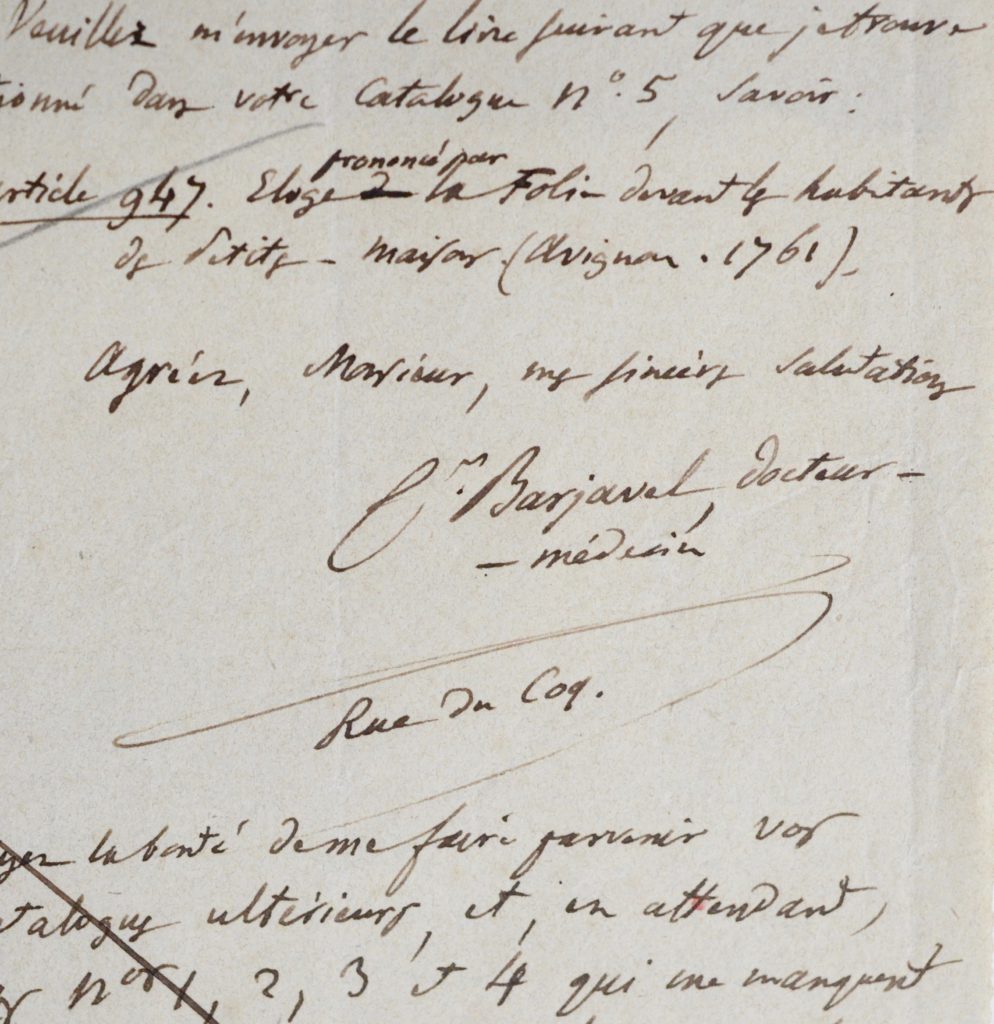 Veuillez m'envoyer le livre suivant que je trouve
tionné dans votre Catalogue n°. 5, savoir :
prononcé par
article 947. Eloge de la Folie devant les habitants
des petites-maisons (Avignon. 1761).
Agréez, Monsieur, mes sincères salutations
Cr. Barjavel, docteur-
-médecin
Rue du Coq.
yez la bonté de me faire parvenir vos
atalogues ultérieurs, et, en attendant,
nos 1, 2, 3 et 4 qui me manquent